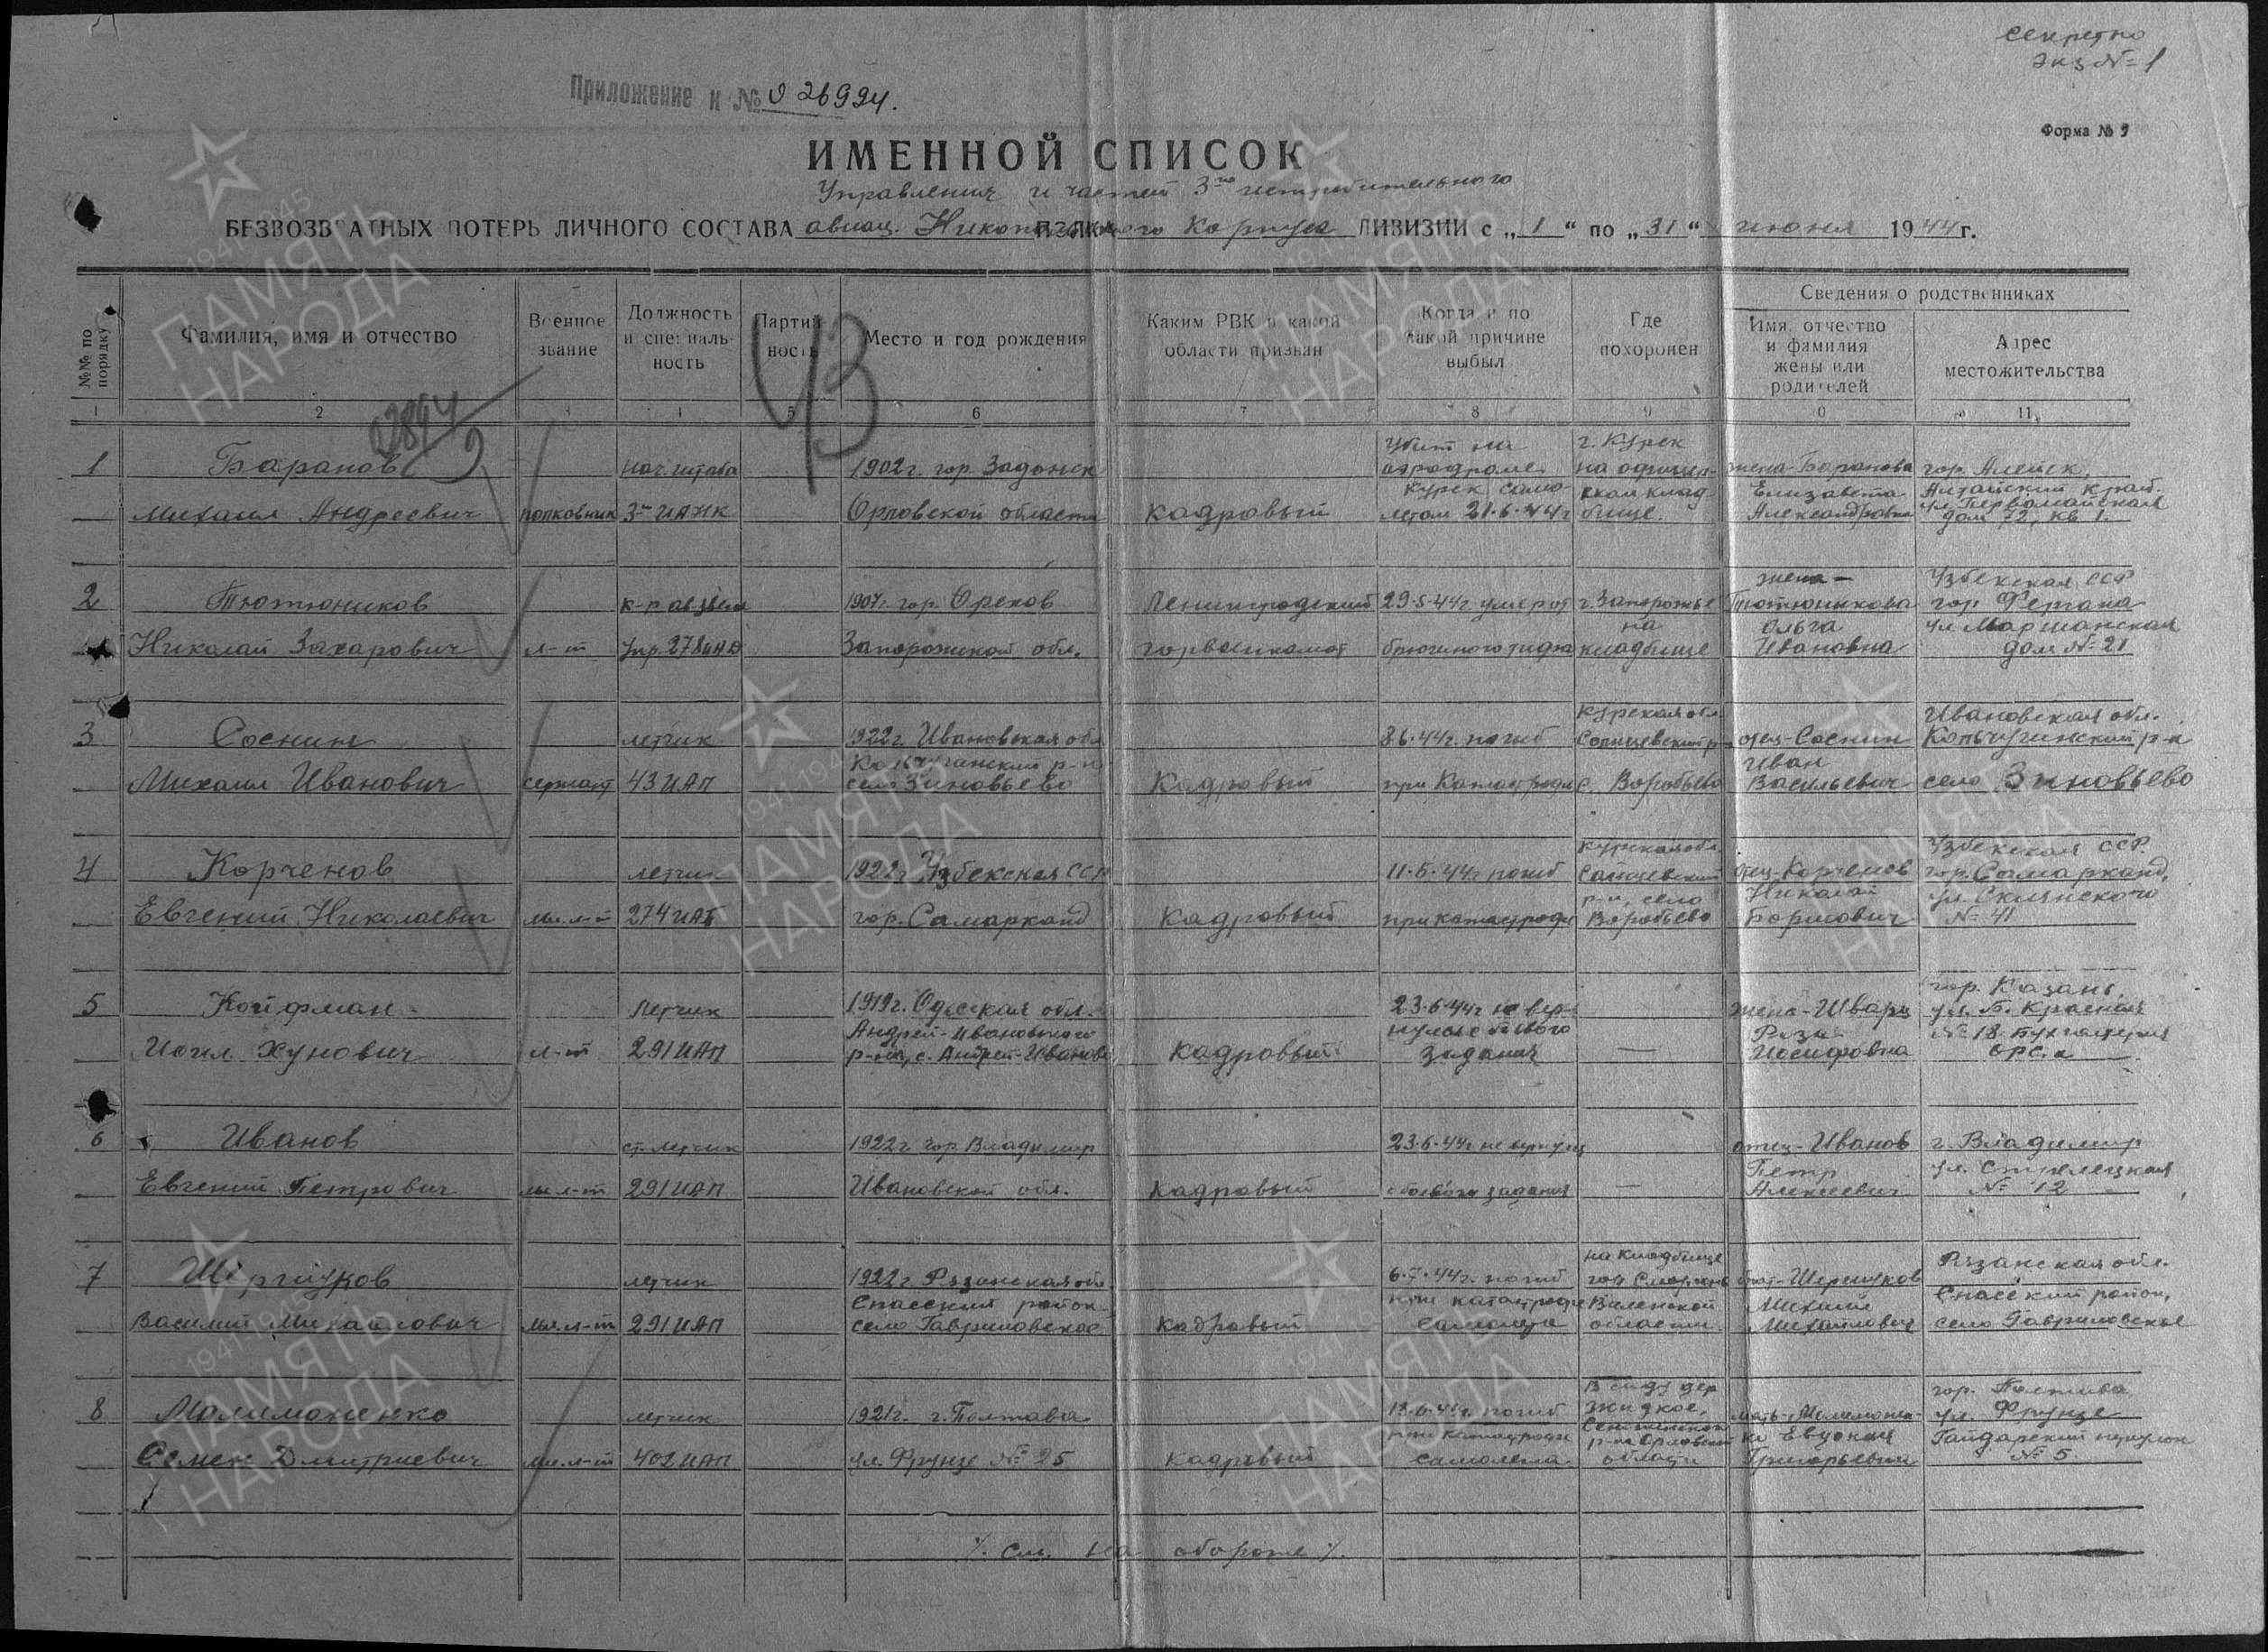 секретно
Экз №-1
Приложение к № 026994.
Форма № 9
ИМЕННОЙ СПИСОК
Управления и частей 3го истребительного
БЕЗВОЗВРАТНЫХ ПОТЕРЬ ЛИЧНОГО СОСТАВА авиац. Никопольского Корпуса ДИВИЗИИ с „1“ по „31“ июня 1944 г.
№№ по порядку
Фамилия, имя и отчество
Военное звание
Должность и специальность
Партийность
Место и год рождения
Каким РВК и какой области призван
Когда и по какой причине выбыл
Где похоронен
Сведения о родственниках
Имя, отчество и фамилия жены или родителей
Адрес местожительства
1 2 5 6 7 8 9 11
43
1 Баранов нач. штаба 1902 г. гор. Задонск Убит на аэродроме г. Курск на офицер- жена-Баранова гор. Алейск,
Михаил Андреевич полковник 3го ИАНК Орловской области кадровый Курск само- летом 21.6.44г ском клад- бище. Елизавета Александровна Алтайский край. ул. Первомайская дом 72, кв 1.
2 Тютюников к-р ав.звена 1907г. гор. Орехов Ленинградский 29.5.44г умер от г. Запорожье жена- Тютюникова Узбекская ССР гор Фергана
Николай Захарович л-т Упр. 278 иАД Запорожской обл. горвоенкомат брюшного тифа на кладбище Ольга Ивановна ул Маршанская дом №-21
3 Соснин летчик 1922г. Ивановская обл 8.6.44г. погиб Курская обл. Солнцевский р-н отец-Соснин Ивановская обл. Кольчугинский р-н
Михаил Иванович сержант 43 ИАП Кольчугинский р-н село Зиновьево Кадровый при Катастрофе с. Воробьево Иван Васильевич село Зиновьево
4 Корченов летчик 1922г. Узбекская ССР погиб Курская обл. отец-Корченов Узбекская ССР гор. Самарканд,
Евгений Николаевич мл. л-т 274 ИАП гор. Самарканд Кадровый при катастрофе р-н, село Воробьево Николай Борисович №-41
5 Койфман летчик 1919г. Одесская обл. 23.6.44г не вер- жена-Шварц гор. Казань,
л-т 291 ИАП Андрей-Ивановского р-на, с. Андрей-Иваново кадровый нулся с боевого задания — Роза Иосифовна №-18 Бухгалтерия орса
6 Иванов ст. летчик 1922г гор. Владимир 23.6.44г не вернулся отец-Иванов г. Владимир
Евгений Петрович мл. л-т 291 ИАП Ивановской обл. кадровый с боевого задания — Петр Алексеевич ул. Стрелецкая №- 12
7 Шершуков летчик 1922г. Рязанская обл. 6.7.44г. погиб на кладбище гор брат-Шершуков Рязанская обл.
Василий Михайлович мл. л-т 291 ИАП Спасский район село Гавриловское кадровый при катастрофе самолета Виленской области Михаил Михайлович Спасский район, село Гавриловское
8 Молимоненко летчик 1921г. г. Полтава погиб дер Жидкое, мать-Молимонен- гор. Полтава ул. Фрунзе
Семен Дмитриевич мл. л-т 402 ИАП ул. Фрунзе №-25 кадровый при катастрофе самолета р-на Орловской области ко Евдокия Григорьевна Гайдарский переулок №-5
/. См. на обороте /.
ПАМЯТЬ НАРОДА
1941-1945